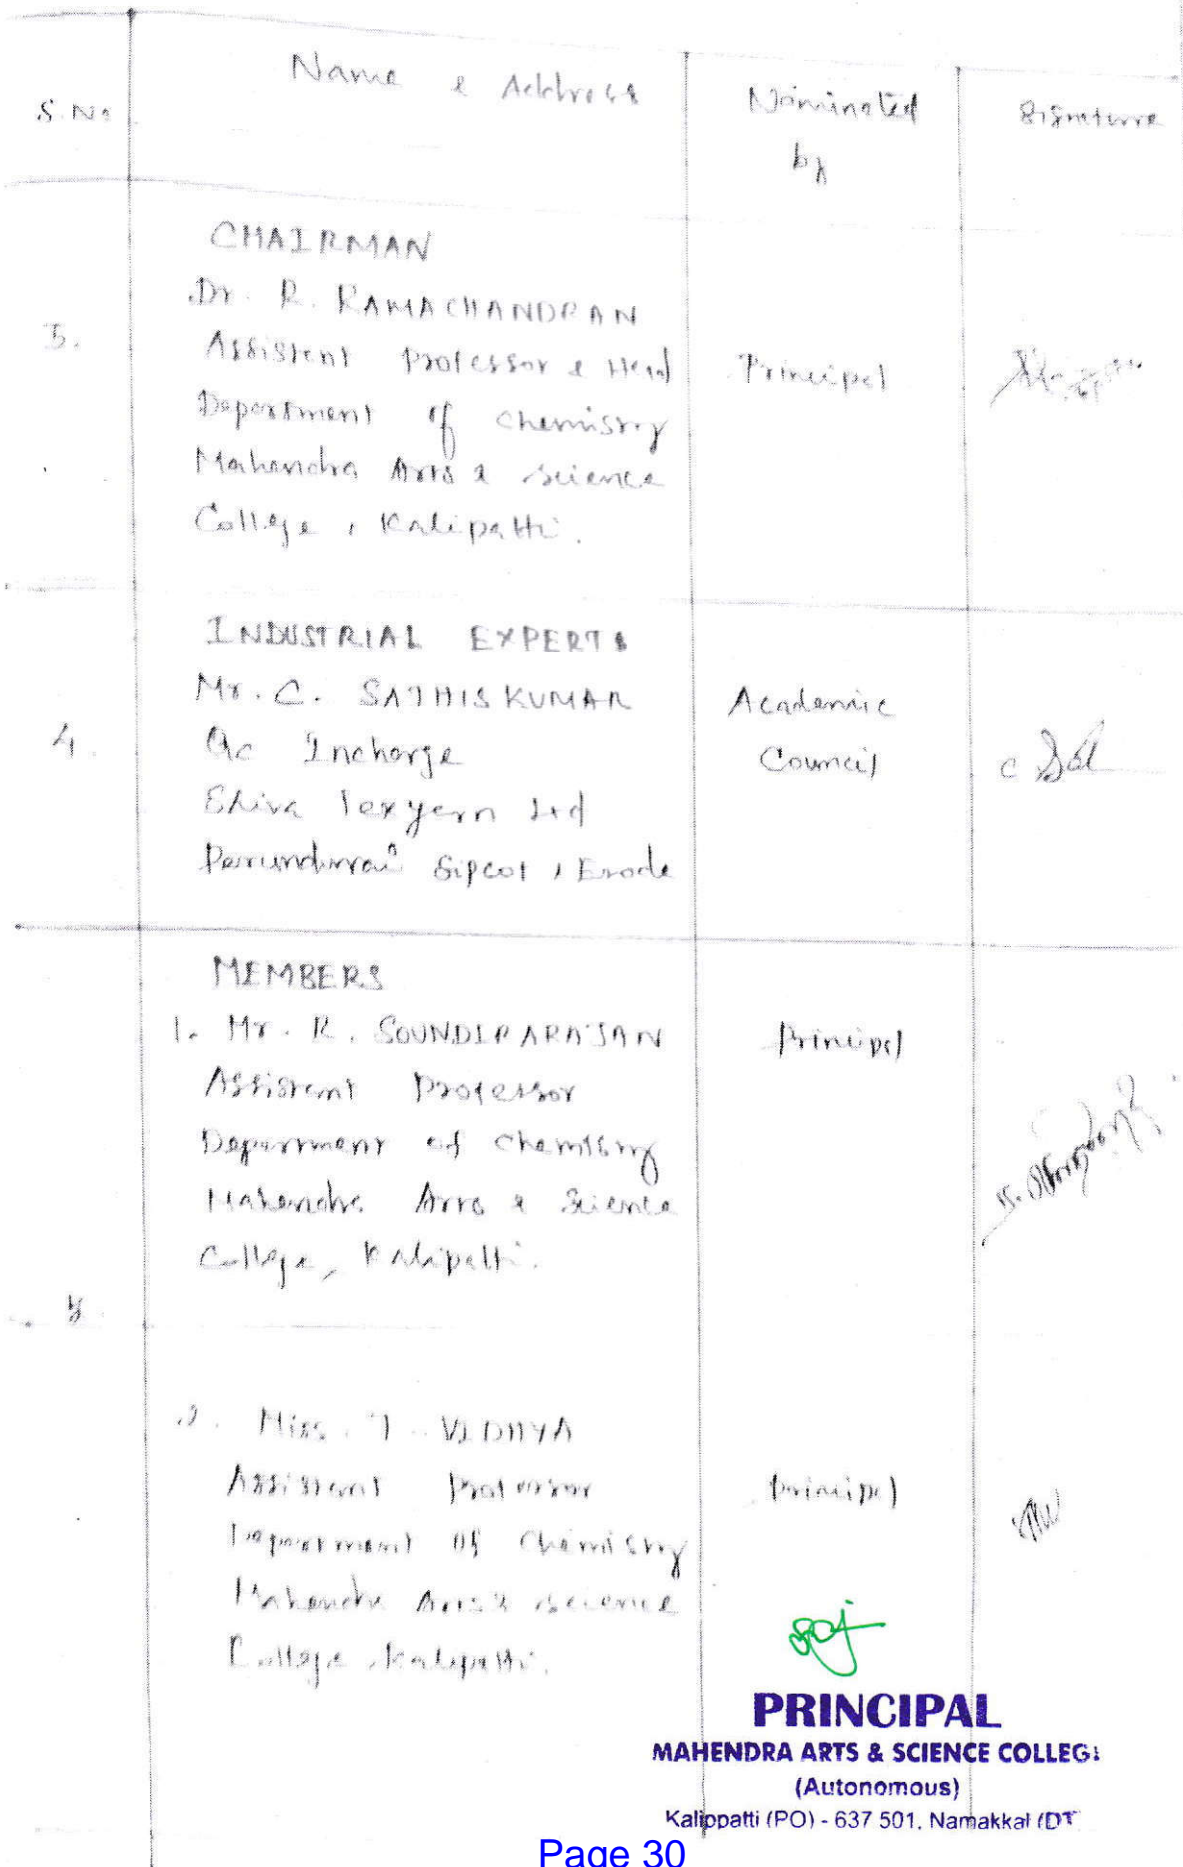 S.No
Name & Address
Nominated
by
Signature
CHAIRMAN
Dr. R. RAMACHANDRAN
3.
Assistant Professor & Head
Principal
Department of Chemistry
Mahendra Arts & Science
College, Kalipatti.
INDUSTRIAL EXPERTS
Mr. C. SATHISKUMAR
Academic
4.
Qc Incharge
Council
Shiva Texyarn Ltd
Perundurai Sipcot, Erode
MEMBERS
1. Mr. R. SOUNDIRARAJAN
Principal
Assistant Professor
Department of Chemistry
Mahendra Arts & Science
College, Kalipatti.
5.
2. Miss. T. VIDHYA
Assistant Professor
Principal
Department of Chemistry
Mahendra Arts & Science
College, Kalipatti.
PRINCIPAL
MAHENDRA ARTS & SCIENCE COLLEGE
(Autonomous)
Kalippatti (PO) - 637 501, Namakkal (DT
Page 30